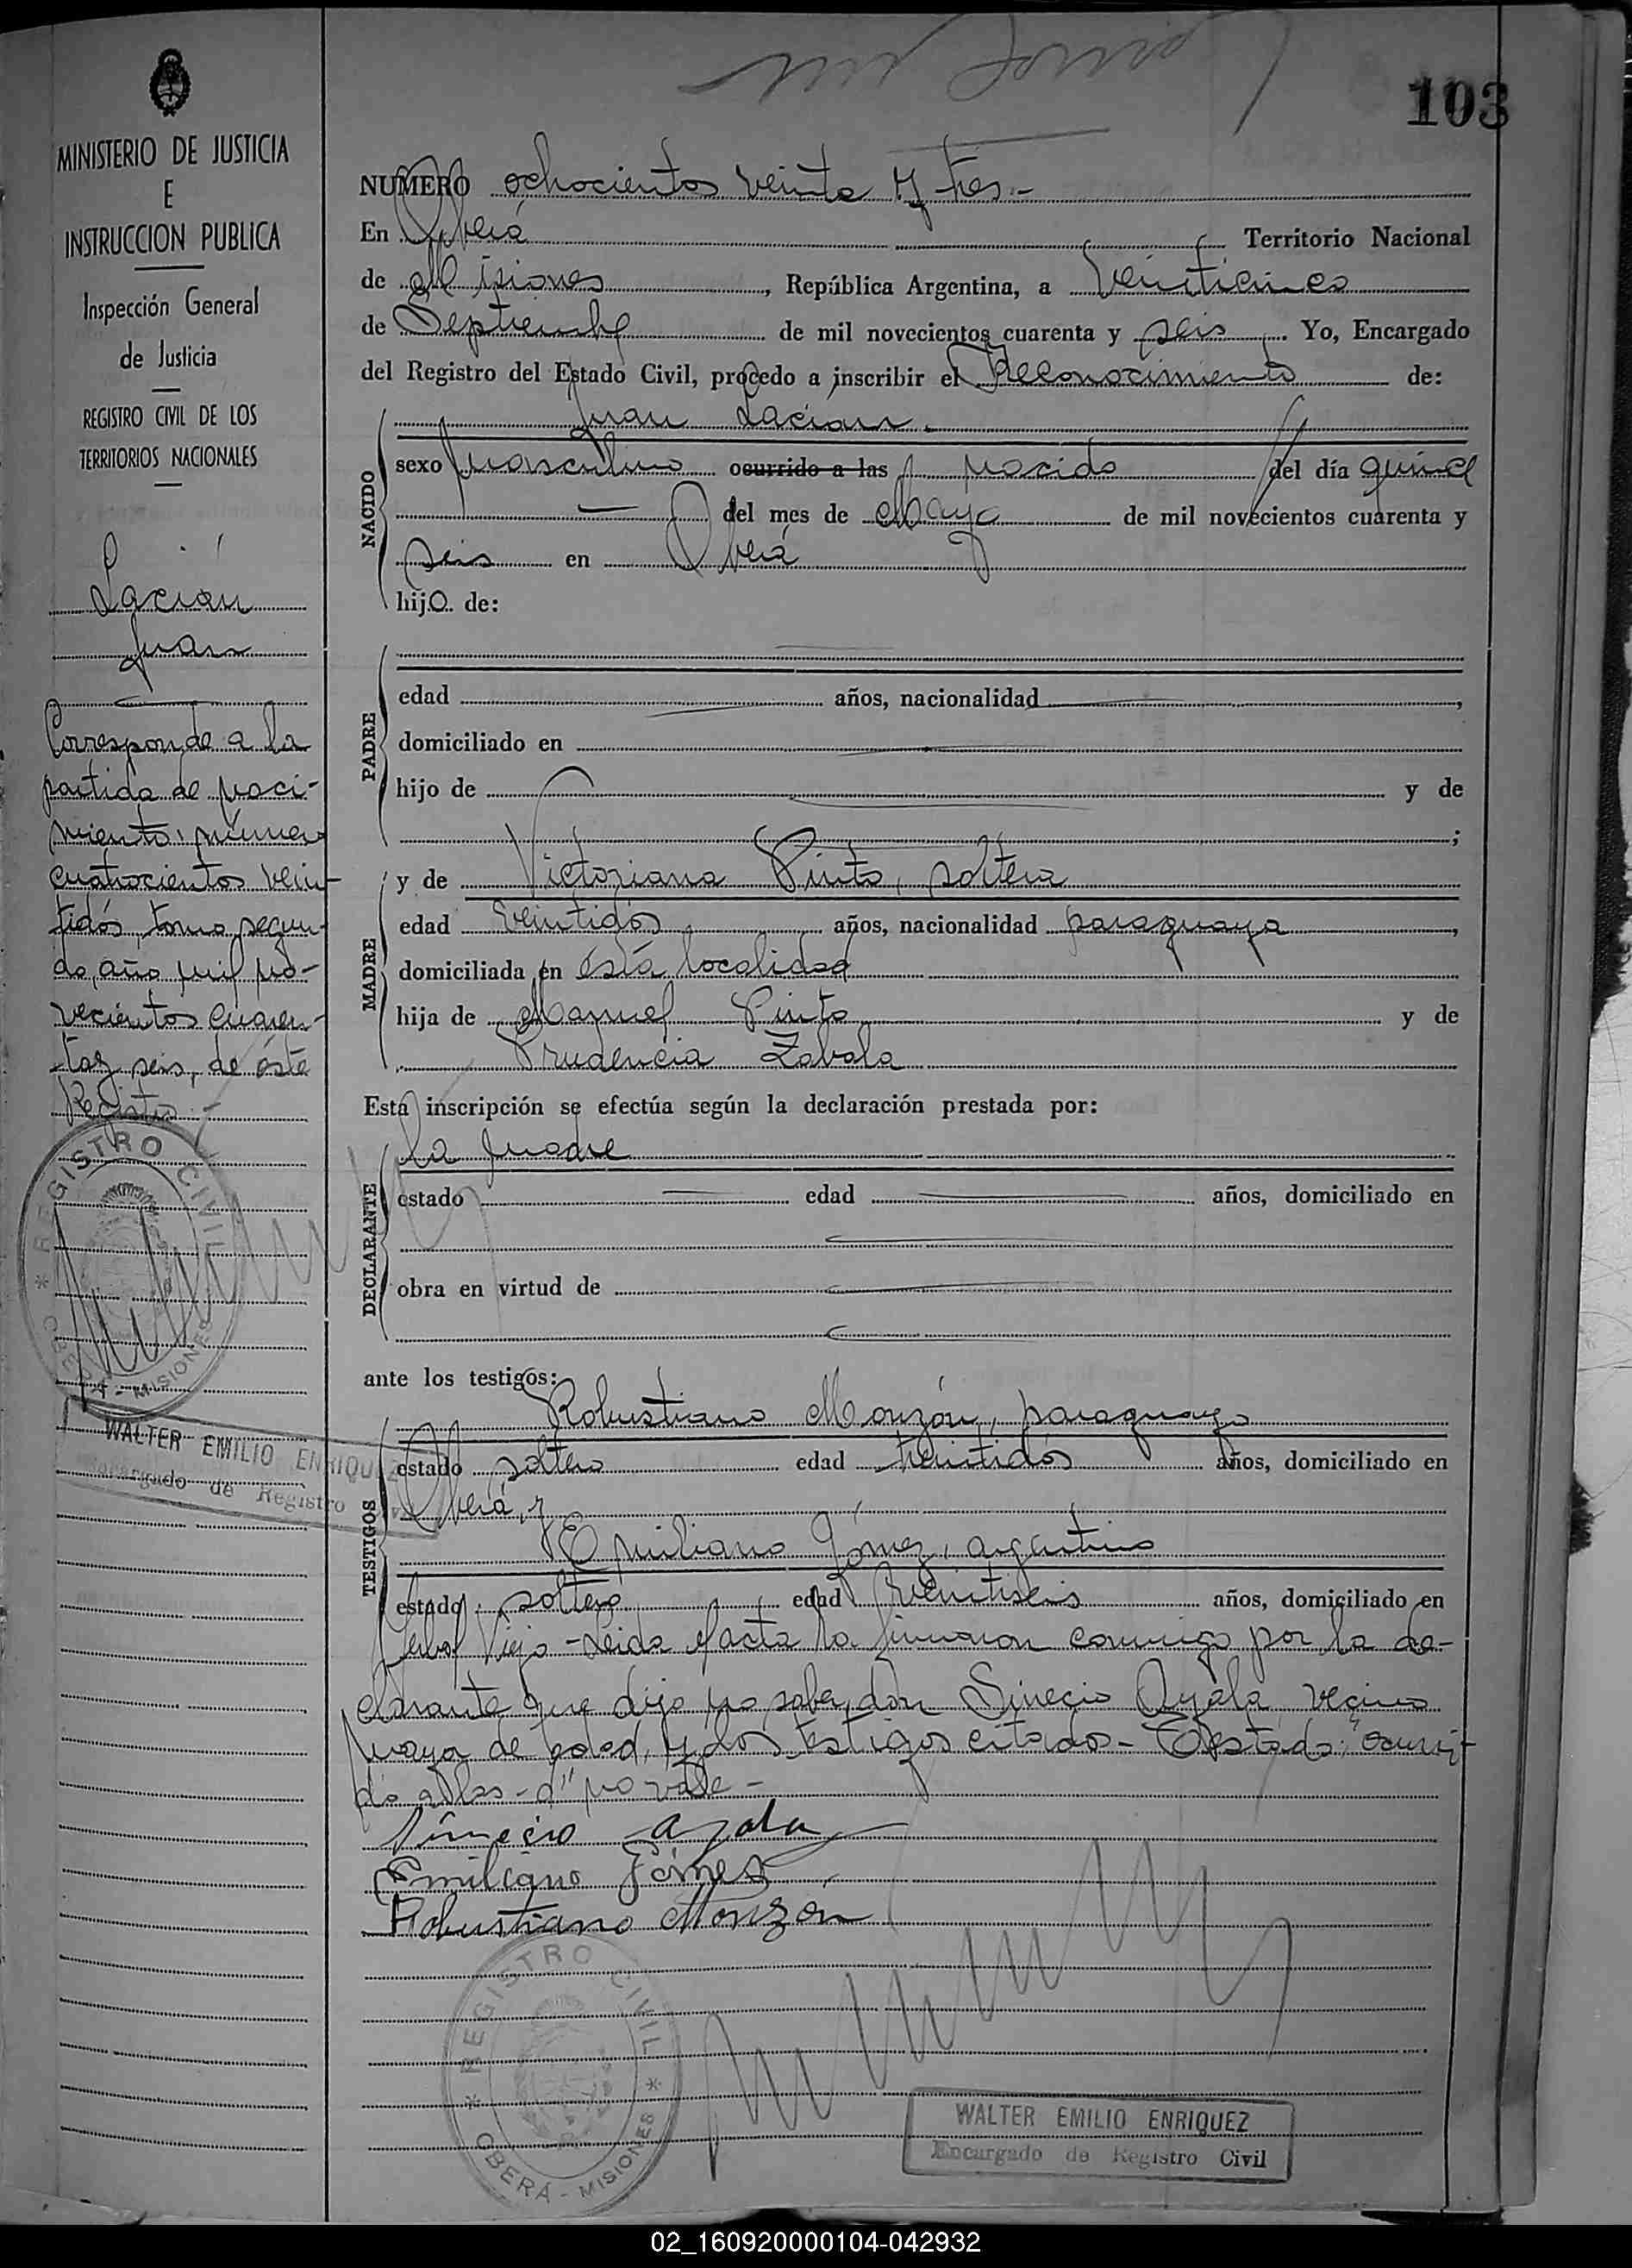 103
MINISTERIO DE JUSTICIA
E
INSTRUCCION PUBLICA
Inspección General
de Justicia
REGISTRO CIVIL DE LOS
TERRITORIOS NACIONALES
Lacián
Juan
Corresponde a la
partida de naci-
miento número
cuatrocientos vein-
tidós, tomo segun-
do, año mil no-
vecientos cuaren-
ta y seis, de éste
Registro.-
REGISTRO CIVIL
OBERA - MISIONES
WALTER EMILIO ENRIQUEZ
Encargado de Registro Civil
NUMERO ochocientos veinte y tres.-
En Oberá Territorio Nacional
de Misiones, República Argentina, a veinticinco
de Septiembre de mil novecientos cuarenta y seis. Yo, Encargado
del Registro del Estado Civil, procedo a inscribir el Reconocimiento de:
NACIDO
Juan Lacian.
sexo masculino ocurrido a las nacido del día quince
del mes de Mayo de mil novecientos cuarenta y
seis en Oberá
hijo de:
PADRE
edad años, nacionalidad ,
domiciliado en
hijo de y de
;
MADRE
y de Victoriana Pinto, soltera
edad veintidós años, nacionalidad paraguaya,
domiciliada en ésta localidad
hija de Manuel Pinto y de
Prudencia Zabala
Esta inscripción se efectúa según la declaración prestada por:
DECLARANTE
la madre
estado edad años, domiciliado en
obra en virtud de
ante los testigos:
TESTIGOS
Robustiano Monzón, paraguayo
estado soltero edad treintidós años, domiciliado en
Oberá, y
Emiliano Gómez, argentino
estado soltero edad veintiseis años, domiciliado en
Yerbal Viejo - Leida el acta la firmaron conmigo por la de-
clarante que dijo no saber, don Sinecio Ayala, vecino
mayor de edad, y los testigos citados - Testado: "ocurri-
do a las - a" no vale -
Sinecio Ayala
Emiliano Gómez
Robustiano Monzón
REGISTRO CIVIL
OBERA - MISIONES
WALTER EMILIO ENRIQUEZ
Encargado de Registro Civil
02_160920000104-042932